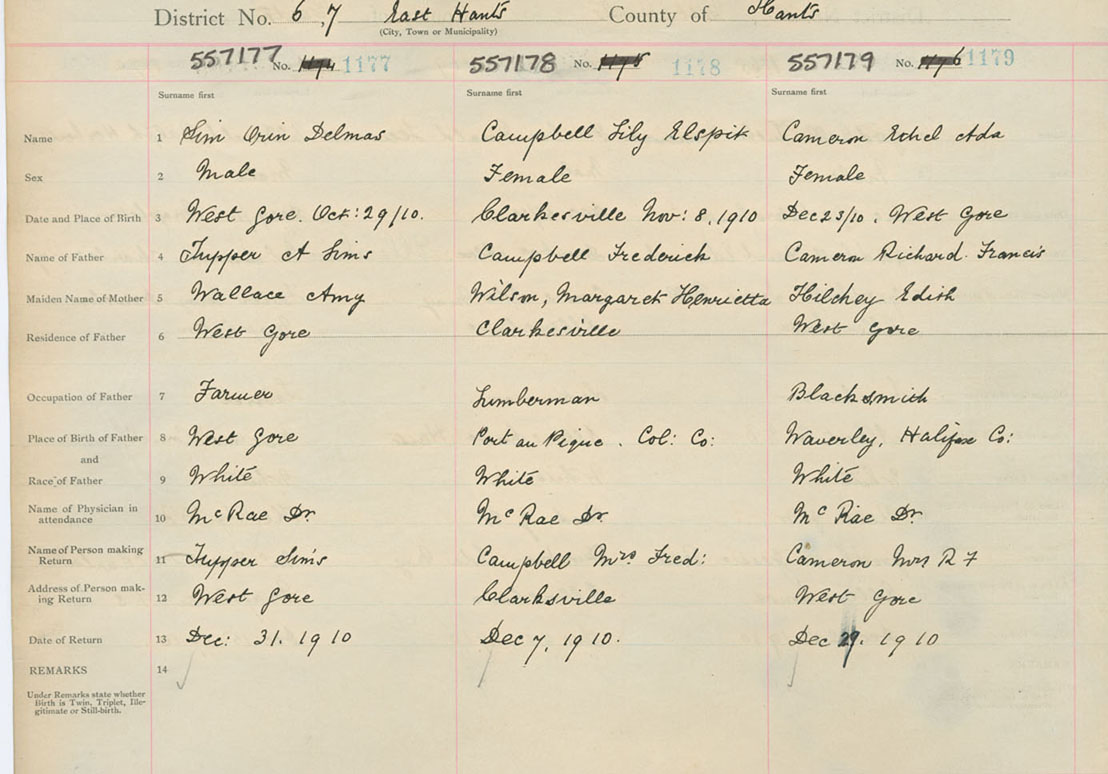 District No. 6, 7 East Hants County of Hants
(City, Town or Municipality)
557177 No. 1177 557178 No. 1178 557179 No. 1179
Surname first Surname first Surname first
Name 1 Sim Orin Delmas Campbell Lily Elspit Cameron Ethel Ada
Sex 2 Male Female Female
Date and Place of Birth 3 West Gore. Oct: 29/10. Clarkesville Nov: 8, 1910 Dec 23/10, West Gore
Name of Father 4 Tupper A Sims Campbell Frederick Cameron Richard Francis
Maiden Name of Mother 5 Wallace Amy Wilson, Margaret Henrietta Hilchey Edith
Residence of Father 6 West Gore Clarkesville West Gore
Occupation of Father 7 Farmer Lumberman Blacksmith
Place of Birth of Father 8 West Gore Port au Pique. Col: Co: Waverley, Halifax Co:
and
Race of Father 9 White White White
Name of Physician in
attendance 10 McRae Dr. McRae Dr. McRae Dr.
Name of Person making
Return 11 Tupper Sims Campbell Mrs Fred: Cameron Mrs R F
Address of Person mak-
ing Return 12 West Gore Clarksville West Gore
Date of Return 13 Dec: 31. 1910 Dec 7, 1910. Dec 29. 1910
REMARKS 14
Under Remarks state whether
Birth is Twin, Triplet, Ille-
gitimate or Still-birth.